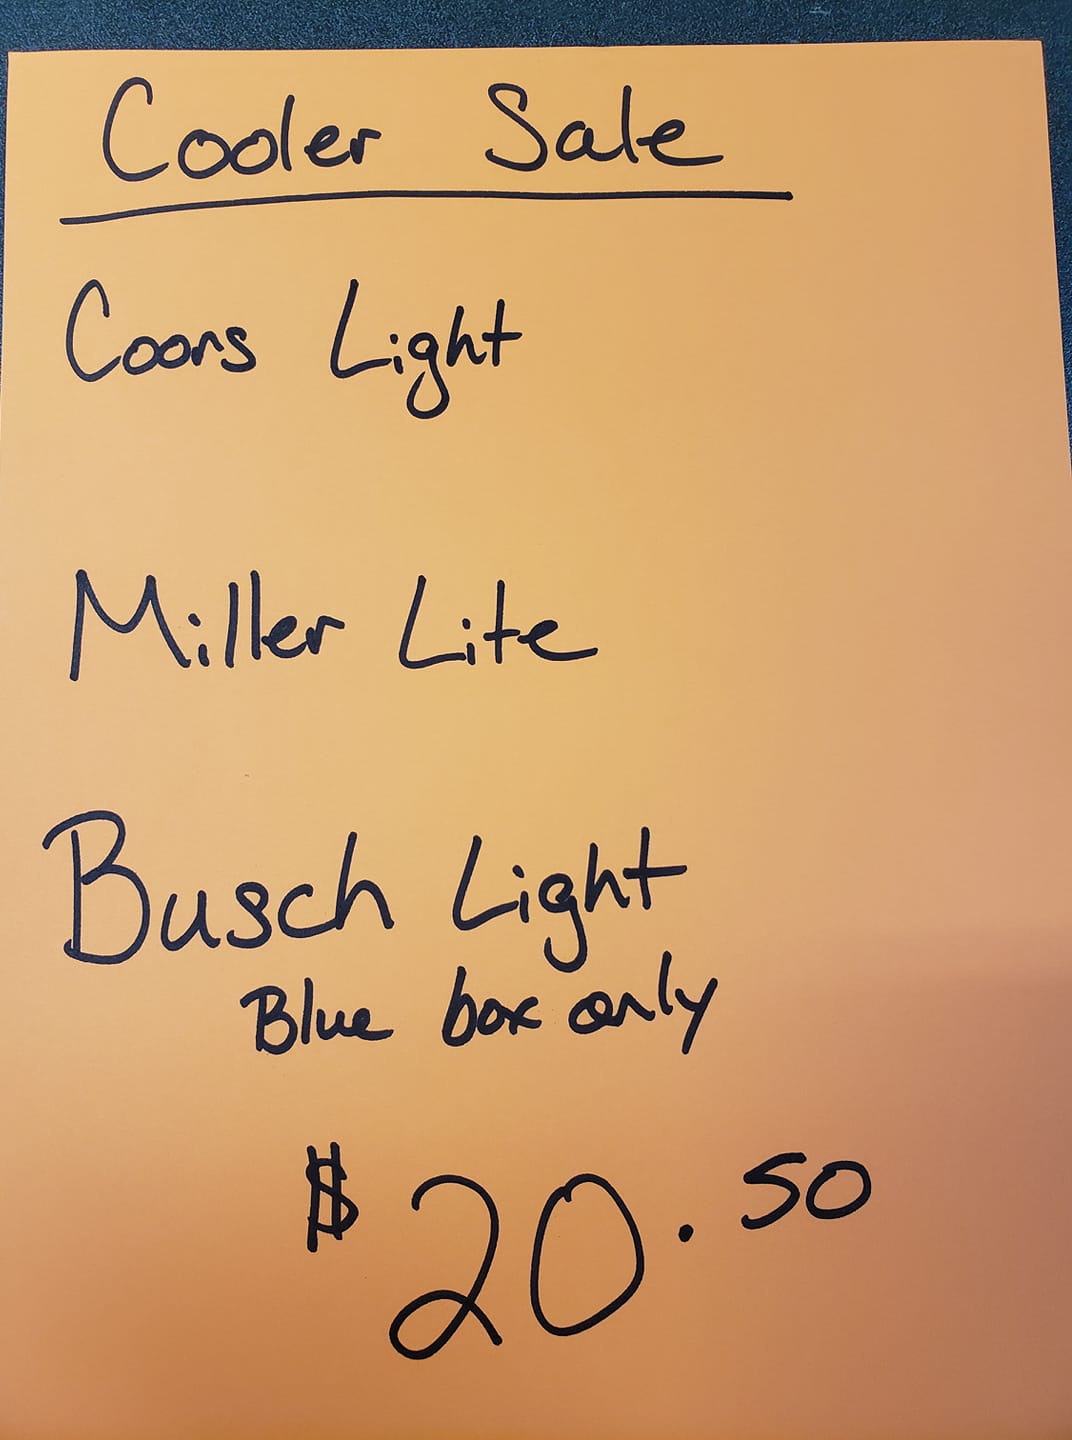 Cooler Sale
Coors Light
Miller Lite
Busch Light
Blue box only
$20.50